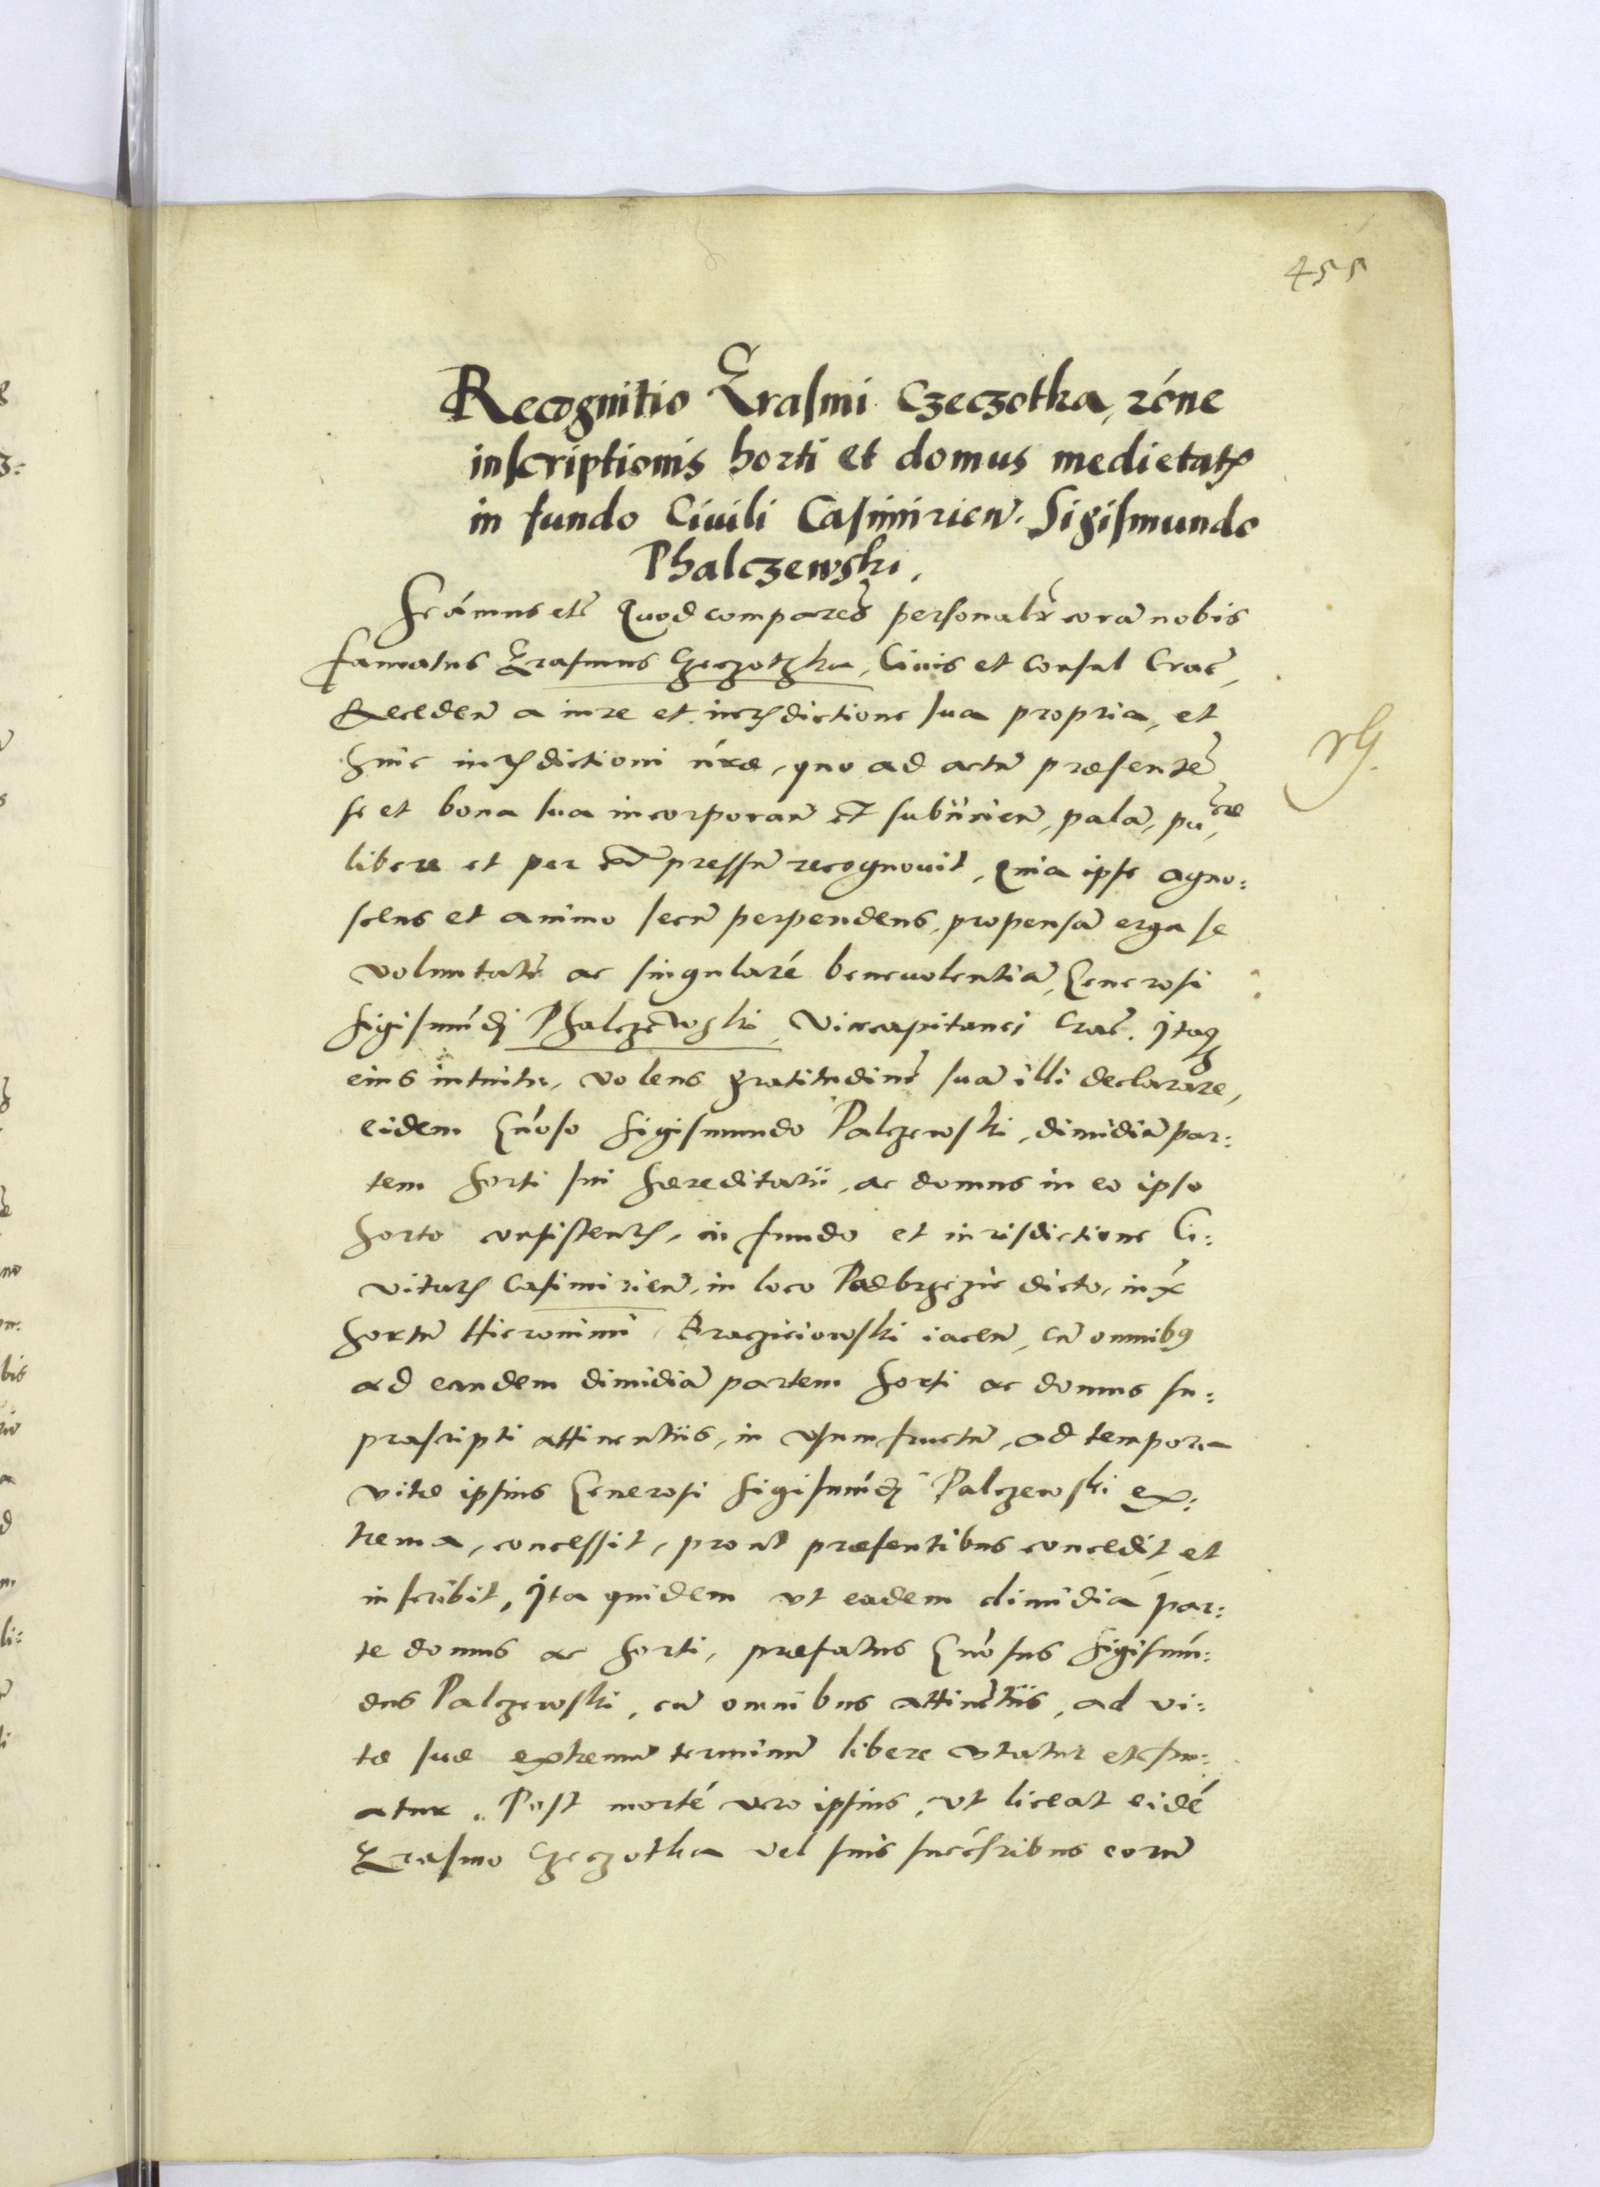 455
Recognitio Erasmi Czeczotka, rone
inscriptionis horti et domus medietatis
in fundo Ciuili Casimirien. Sigismundo
Phalczewski.
Quod comparens personaliter coram nobis
famatus Erasmus Czeczotzka, Ciuis et consul Crac,
Recedens a iure et iurisdictione sua propria, et
huic iurisdictioni nrae, quo ad actum praesentem
se et bona sua incorporans et subiiciens, palam,
libere et per expressum recognouit, Quia ipse agno:
scens et animo secum perpendens, propensam erga se
voluntatem ac singularem beneuolentiam, Generosi
Sigismundi Phalczewski, Vicecapitanei Crac. Itaq
eius intuitu, volens gratitudinem suam illi declarare,
eidem Gnoso Sigismundo Palczewski, dimidiam par:
tem horti sui haereditarii, ac domus in eo ipso
horto consistentis, in fundo et iurisdictione Ci:
vitatis Casimirien, in loco Podbrzezie dicto,
hortum Hieronimi iacen, cum omnibus
ad eandem dimidiam partem horti ac domus su:
prascripti attinentiis, in vsumfructum, ad tempora
vitae ipsius Generosi Sigismundi Palczewski ex:
trema, concessit, prout praesentibus concedit, et
inscribit, Ita quidem vt eadem dimidia par:
te domus ac horti, praefatus Gnosus Sigismun:
dus Palczewski, cum omnibus attinentiis, ad vi:
tae suae extremum terminum libere vtatur et fru:
atur. Post mortem vero ipsius, vt liceat eidem
Erasmo Czeczotka vel suis successoribus eorum